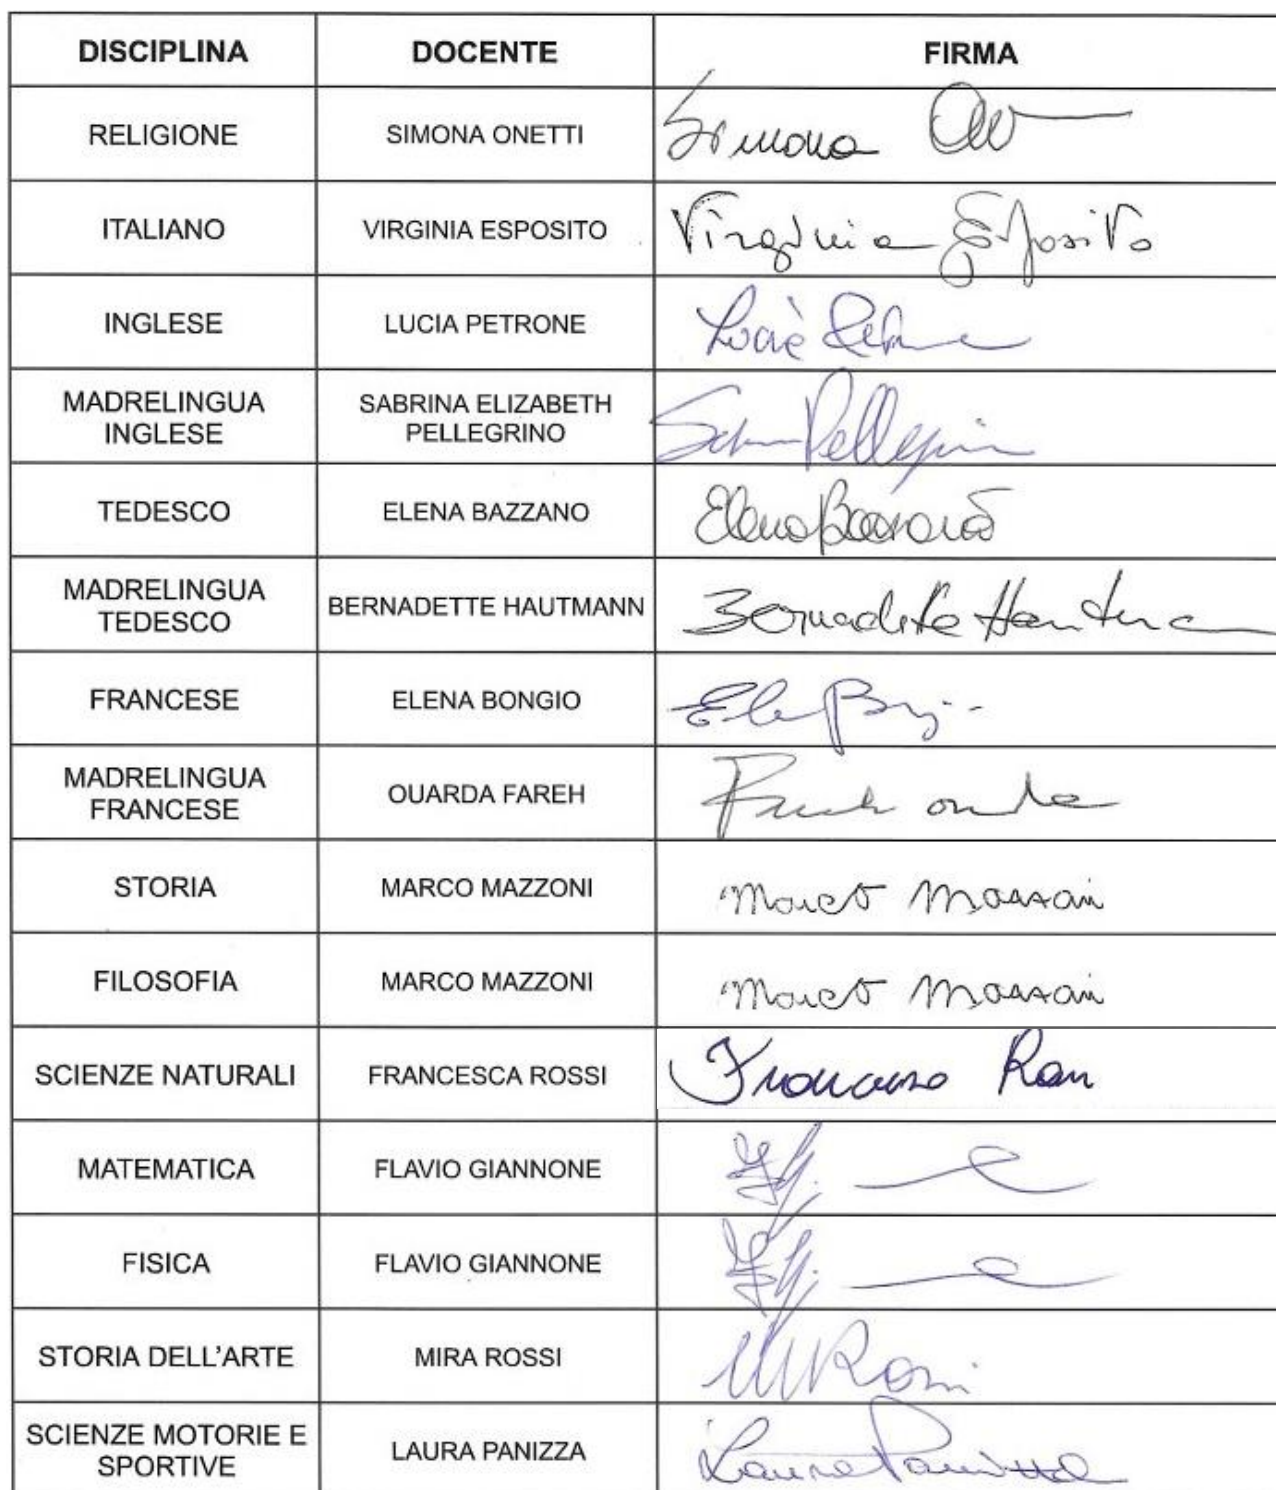 DISCIPLINA DOCENTE FIRMA
RELIGIONE SIMONA ONETTI Simona
ITALIANO VIRGINIA ESPOSITO Virginia Esposito
INGLESE LUCIA PETRONE Lucia
MADRELINGUA
INGLESE
SABRINA ELIZABETH
PELLEGRINO
TEDESCO ELENA BAZZANO Elena Bazzano
MADRELINGUA
TEDESCO
BERNADETTE HAUTMANN Bernadette
FRANCESE ELENA BONGIO
MADRELINGUA
FRANCESE
OUARDA FAREH
STORIA MARCO MAZZONI Marco Mazzoni
FILOSOFIA MARCO MAZZONI Marco Mazzoni
SCIENZE NATURALI FRANCESCA ROSSI Francesca Rossi
MATEMATICA FLAVIO GIANNONE
FISICA FLAVIO GIANNONE
STORIA DELL'ARTE MIRA ROSSI M Rossi
SCIENZE MOTORIE E
SPORTIVE
LAURA PANIZZA Laura Panizza